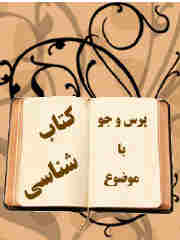 کتاب
شناسی
پرس و جو
با
موضوع